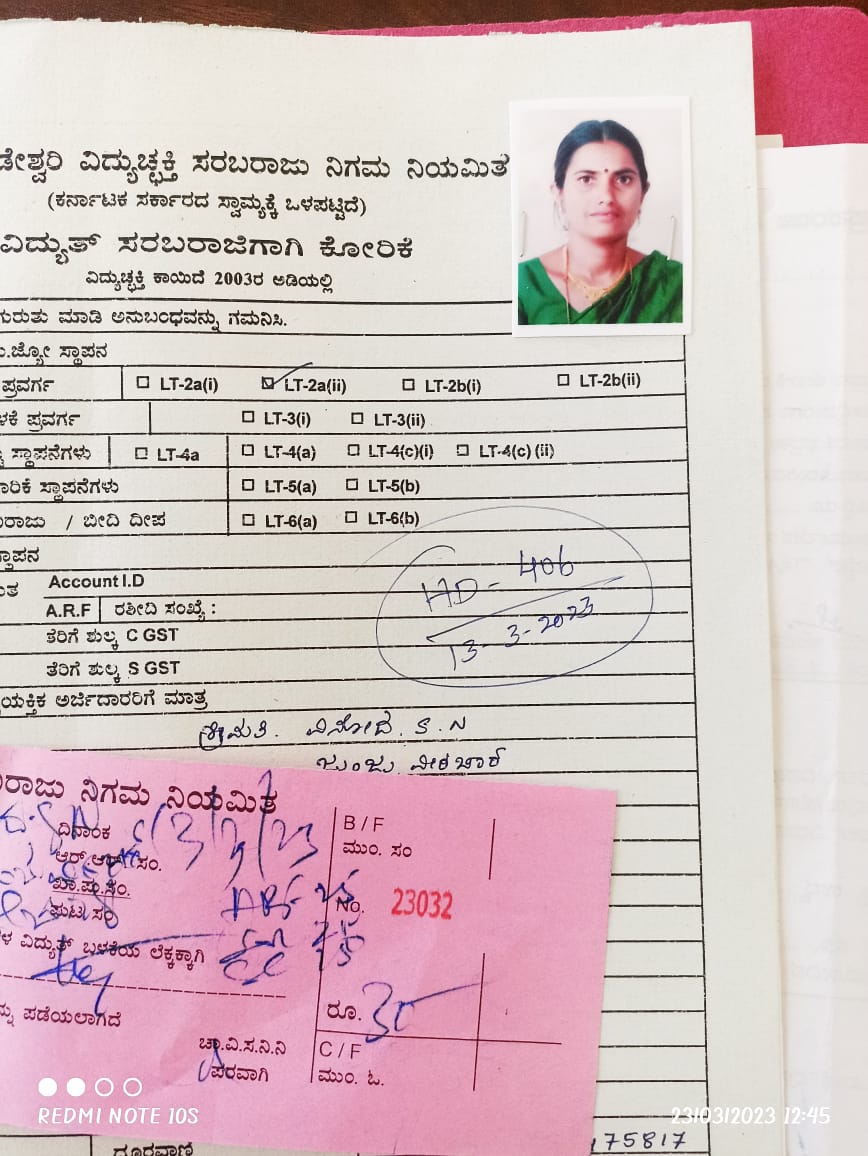 ಡೇಶ್ವರಿ ವಿದ್ಯುಚ್ಛಕ್ತಿ ಸರಬರಾಜು ನಿಗಮ ನಿಯಮಿತ
(ಕರ್ನಾಟಕ ಸರ್ಕಾರದ ಸ್ವಾಮ್ಯಕ್ಕೆ ಒಳಪಟ್ಟಿದೆ)
ವಿದ್ಯುತ್ ಸರಬರಾಜಿಗಾಗಿ ಕೋರಿಕೆ
ವಿದ್ಯುಚ್ಛಕ್ತಿ ಕಾಯಿದೆ 2003ರ ಅಡಿಯಲ್ಲಿ
ಗುರುತು ಮಾಡಿ ಅನುಬಂಧವನ್ನು ಗಮನಿಸಿ.
.ಜ್ಯೋ ಸ್ಥಾಪನ
ಪ್ರವರ್ಗ LT-2a(i) LT-2a(ii) LT-2b(i) LT-2b(ii)
ಳಕೆ ಪ್ರವರ್ಗ LT-3(i) LT-3(ii)
ಸ್ಥಾಪನೆಗಳು LT-4a LT-4(a) LT-4(c)(i) LT-4(c)(ii)
ಾರಿಕೆ ಸ್ಥಾಪನೆಗಳು LT-5(a) LT-5(b)
ರಾಜು / ಬೀದಿ ದೀಪ LT-6(a) LT-6(b)
ಸ್ಥಾಪನ
Account I.D
A.R.F ರಶೀದಿ ಸಂಖ್ಯೆ :
HD - 406
13-3-2023
ತೆರಿಗೆ ಶುಲ್ಕ C GST
ತೆರಿಗೆ ಶುಲ್ಕ S GST
ಯಕ್ತಿಕ ಅರ್ಜಿದಾರರಿಗೆ ಮಾತ್ರ
ಶ್ರೀಮತಿ. ವಿನೋದ. ಕೆ. ಎನ್
ರಾಜು ನಿಗಮ ನಿಯಮಿತ
ದಿನಾಂಕ
ಆರ್.ಆರ್. ಸಂ.
ಖಾ.ಪು.ಸಂ.
ಪುಟ ಸಂ
ಳ ವಿದ್ಯುತ್ ಬಳಕೆಯ ಲೆಕ್ಕಕ್ಕಾಗಿ
ನ್ನು ಪಡೆಯಲಾಗಿದೆ
ಚಾ.ವಿ.ಸ.ನಿ.ನಿ
ಪರವಾಗಿ
B / F
ಮುಂ. ಸಂ
No. 23032
ರೂ.
C / F
ಮುಂ. ಓ.
REDMI NOTE 10S
23/03/2023 12:45
ದೂರವಾಣಿ 175817